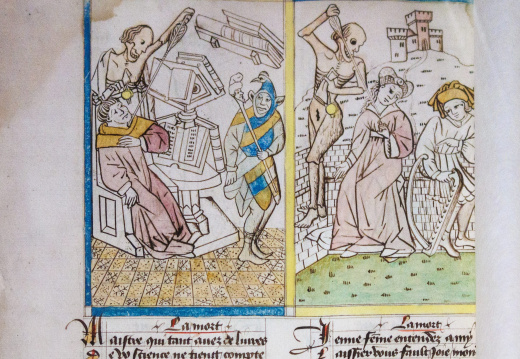 La mort
Maistre qui tant auez de liures
De science ne tient compte
La mort
Jenne feme entendez a my
Laissier vous fault joie mon